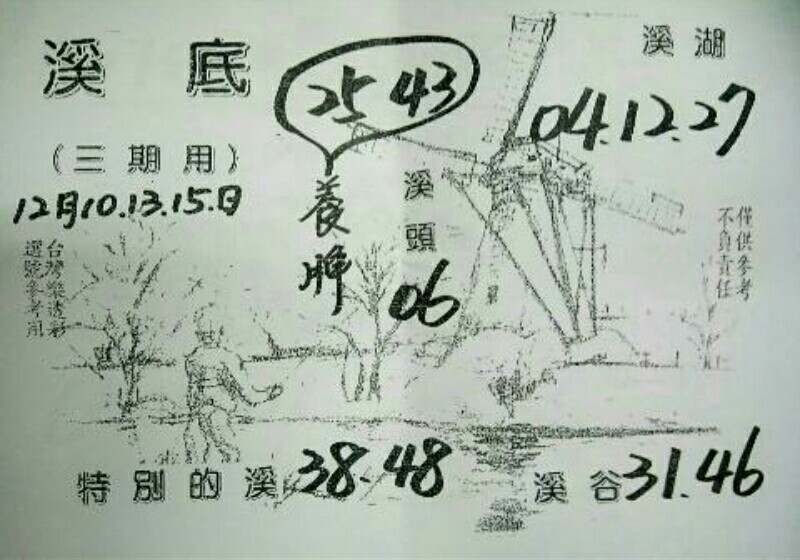 溪底
25 43
溪湖
04.12.27
(三期用)
12月10.13.15.日
養牌
溪頭
06
僅供參考
不負責任
台灣樂透彩
選號參考用
特別的溪 38.48
溪谷 31.46